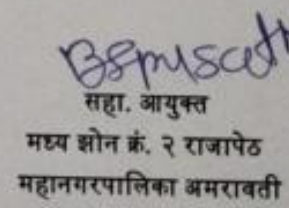 सहा. आयुक्त
मध्य झोन क्रं. २ राजापेठ
महानगरपालिका अमरावती